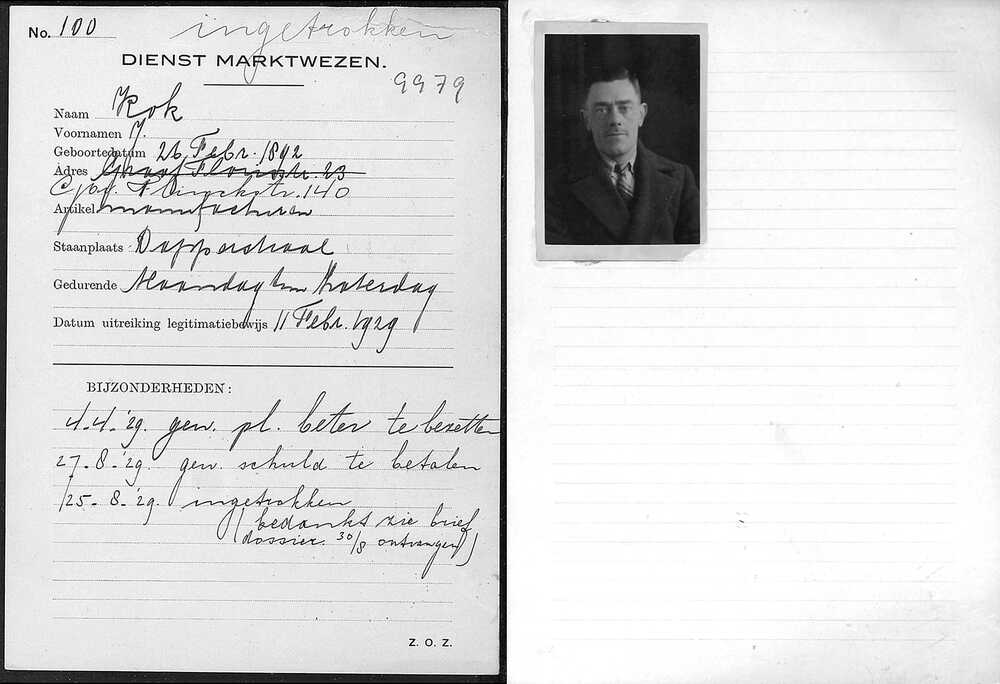 No. 100 ingetrokken
DIENST MARKTWEZEN.
9979
Naam Kok
Voornamen J.
Geboortedatum 26 Febr. 1892
Adres Graaf Florisstr. 23
Gov. Flinckstr. 140
Artikel manufacturen
Staanplaats Dapperstraat
Gedurende Maandag t/m Zaterdag
Datum uitreiking legitimatiebewijs 11 Febr. 1929
BIJZONDERHEDEN:
4-4-'29. gew. pl. beter te bezetten
27-8-'29. gew. schuld te betalen
25-8-'29. ingetrokken
(bedankt zie brief
dossier. 30/8 ontvangen)
Z. O. Z.